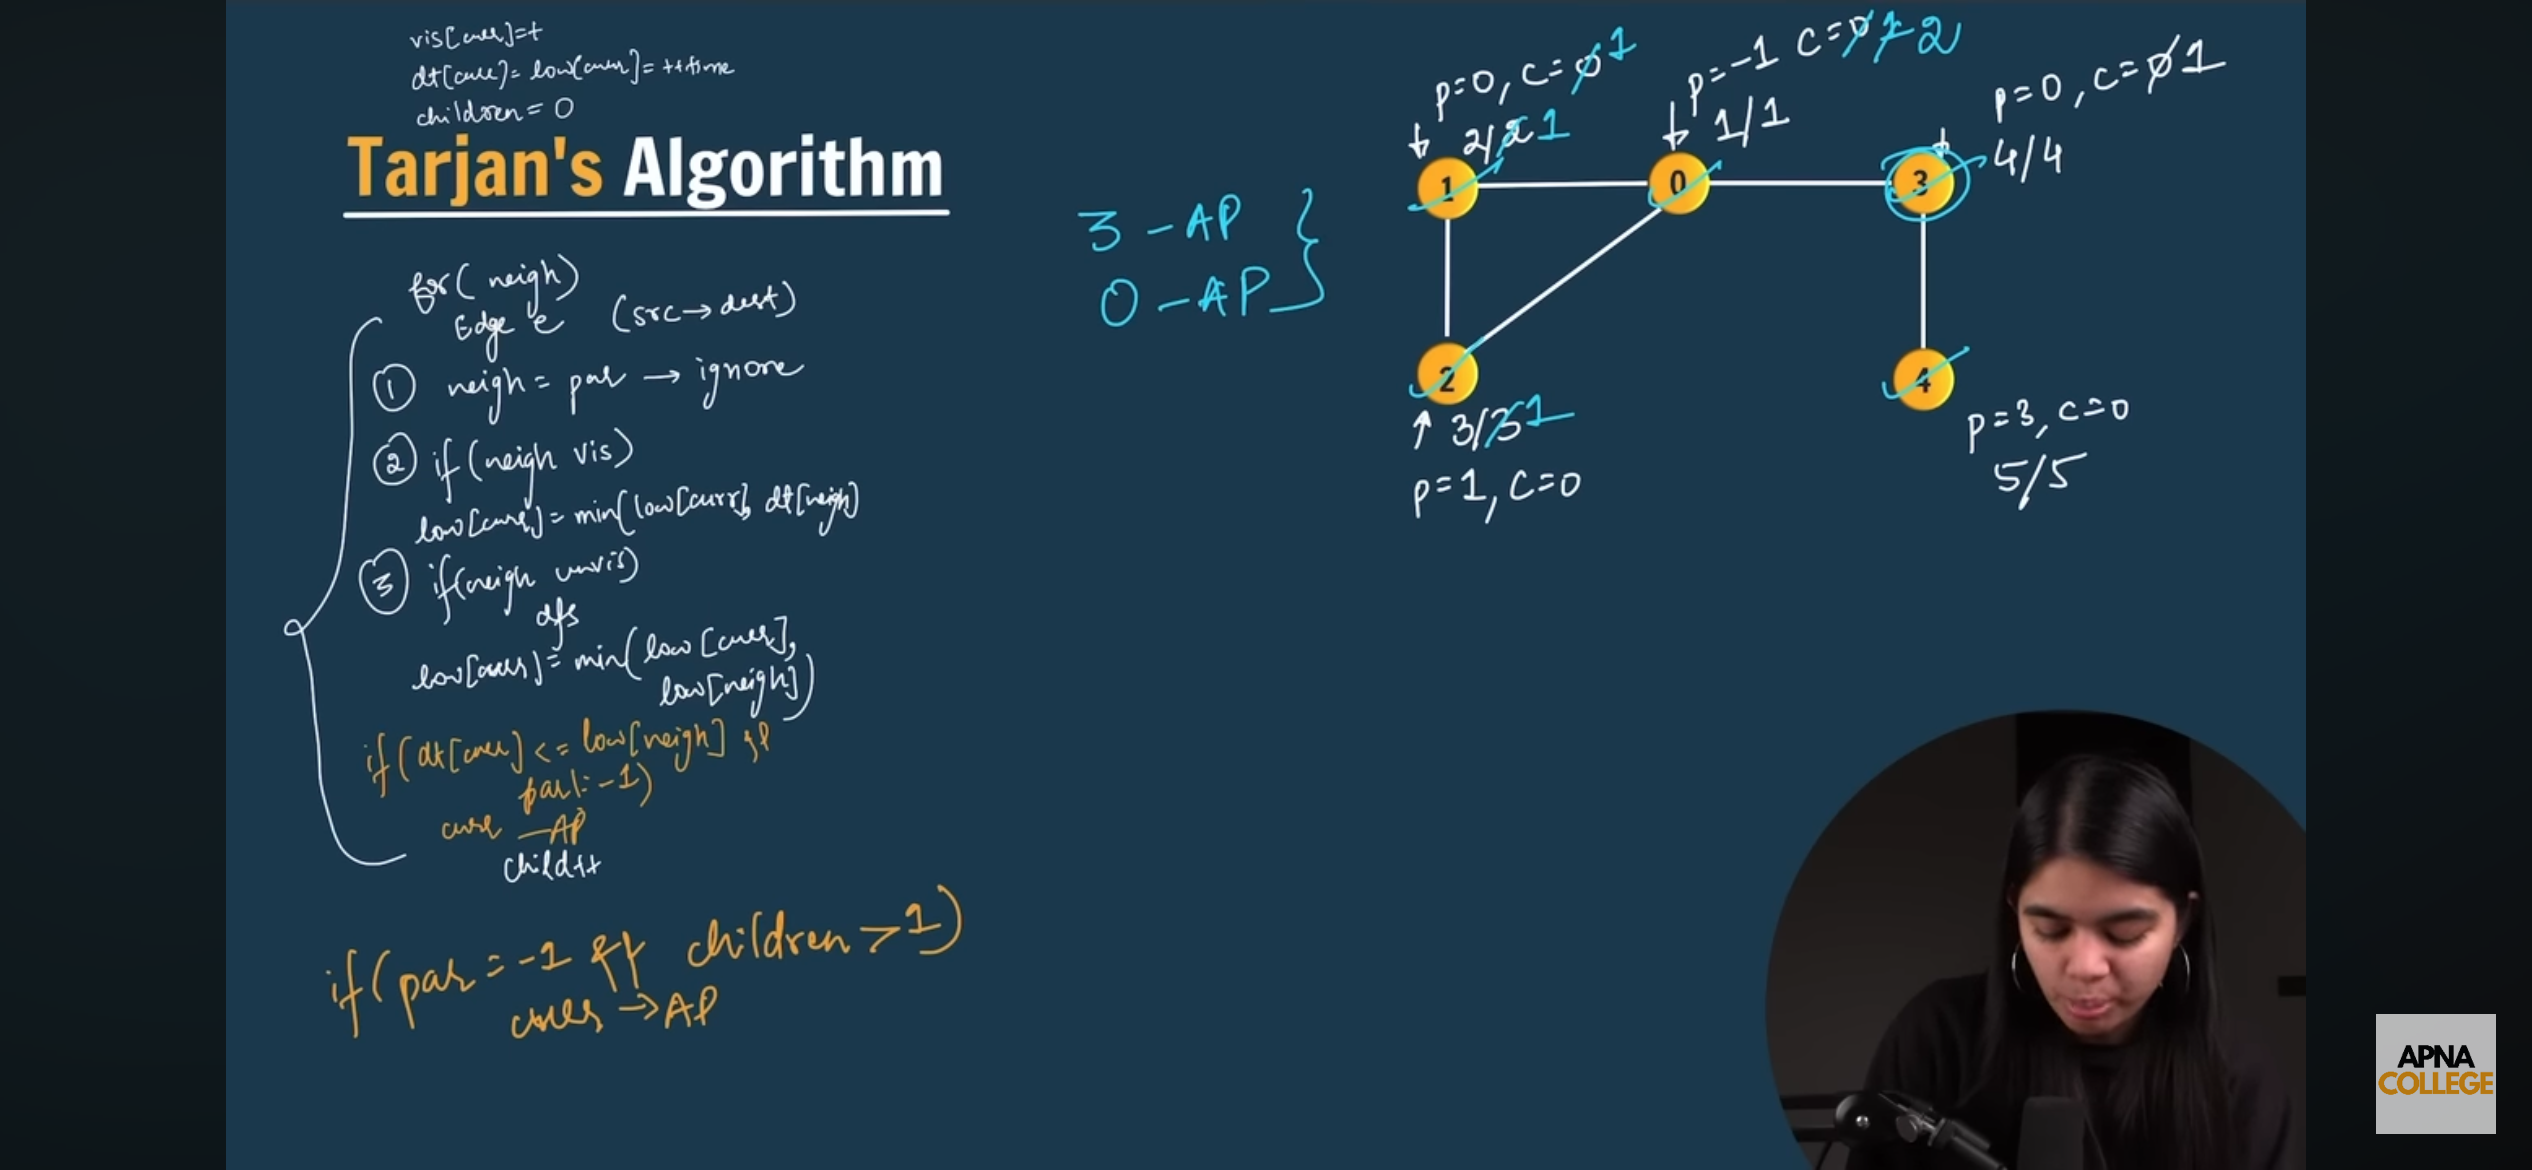 vis[curr]=t
dt[curr]= low[curr]= ++time
children = 0
Tarjan's Algorithm
for( neigh)
Edge e (src→dest)
① neigh = par → ignore
② if (neigh vis)
low[curr]= min(low[curr], dt[neigh]
③ if(neigh unvis)
dfs
low[curr]= min(low[curr],
low[neigh])
if(dt[curr] <= low[neigh] &&
par!=-1)
curr —AP
child++
if(par = -1 && children >1)
curr → AP
3 - AP
0 - AP
p=0, c=0 1
2/2 1
p=-1 c=0 1 2
1/1
p=0, c=0 1
4/4
1
0
3
2
4
3/3 1
p=1, c=0
p=3, c=0
5/5
APNA
COLLEGE